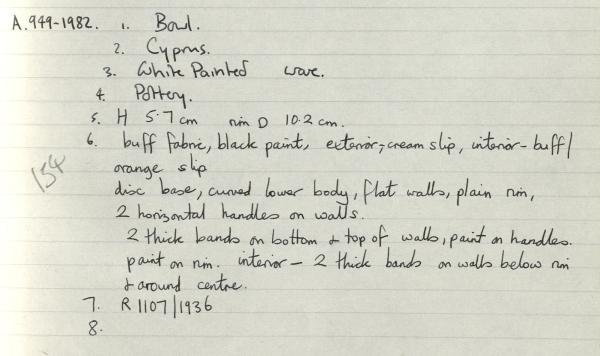 A.949-1982. 1. Bowl.
2. Cyprus.
3. White Painted ware.
4. Pottery.
5. H 5.7cm rim D 10.2 cm.
6. buff fabric, black paint, exterior-cream slip, interior-buff/
orange slip
154
disc base, curved lower body, flat walls, plain rim,
2 horizontal handles on walls.
2 thick bands on bottom & top of walls, paint on handles.
paint on rim. interior - 2 thick bands on walls below rim
& around centre.
7. R 1107/1936
8.